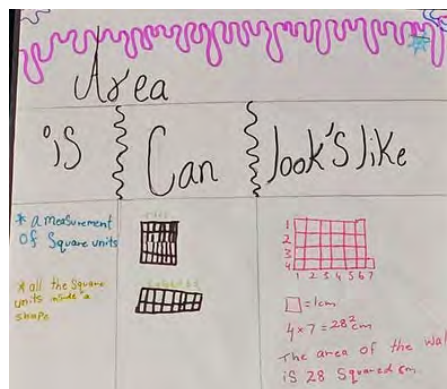 Area
is
Can
look's like
* a measurement
of Square units
* all the Square
units inside a
shape
1
2
3
4
1 2 3 4 5 6 7
= 1cm
4 x 7 = 28²cm
The area of the wal
is 28 Squared cm